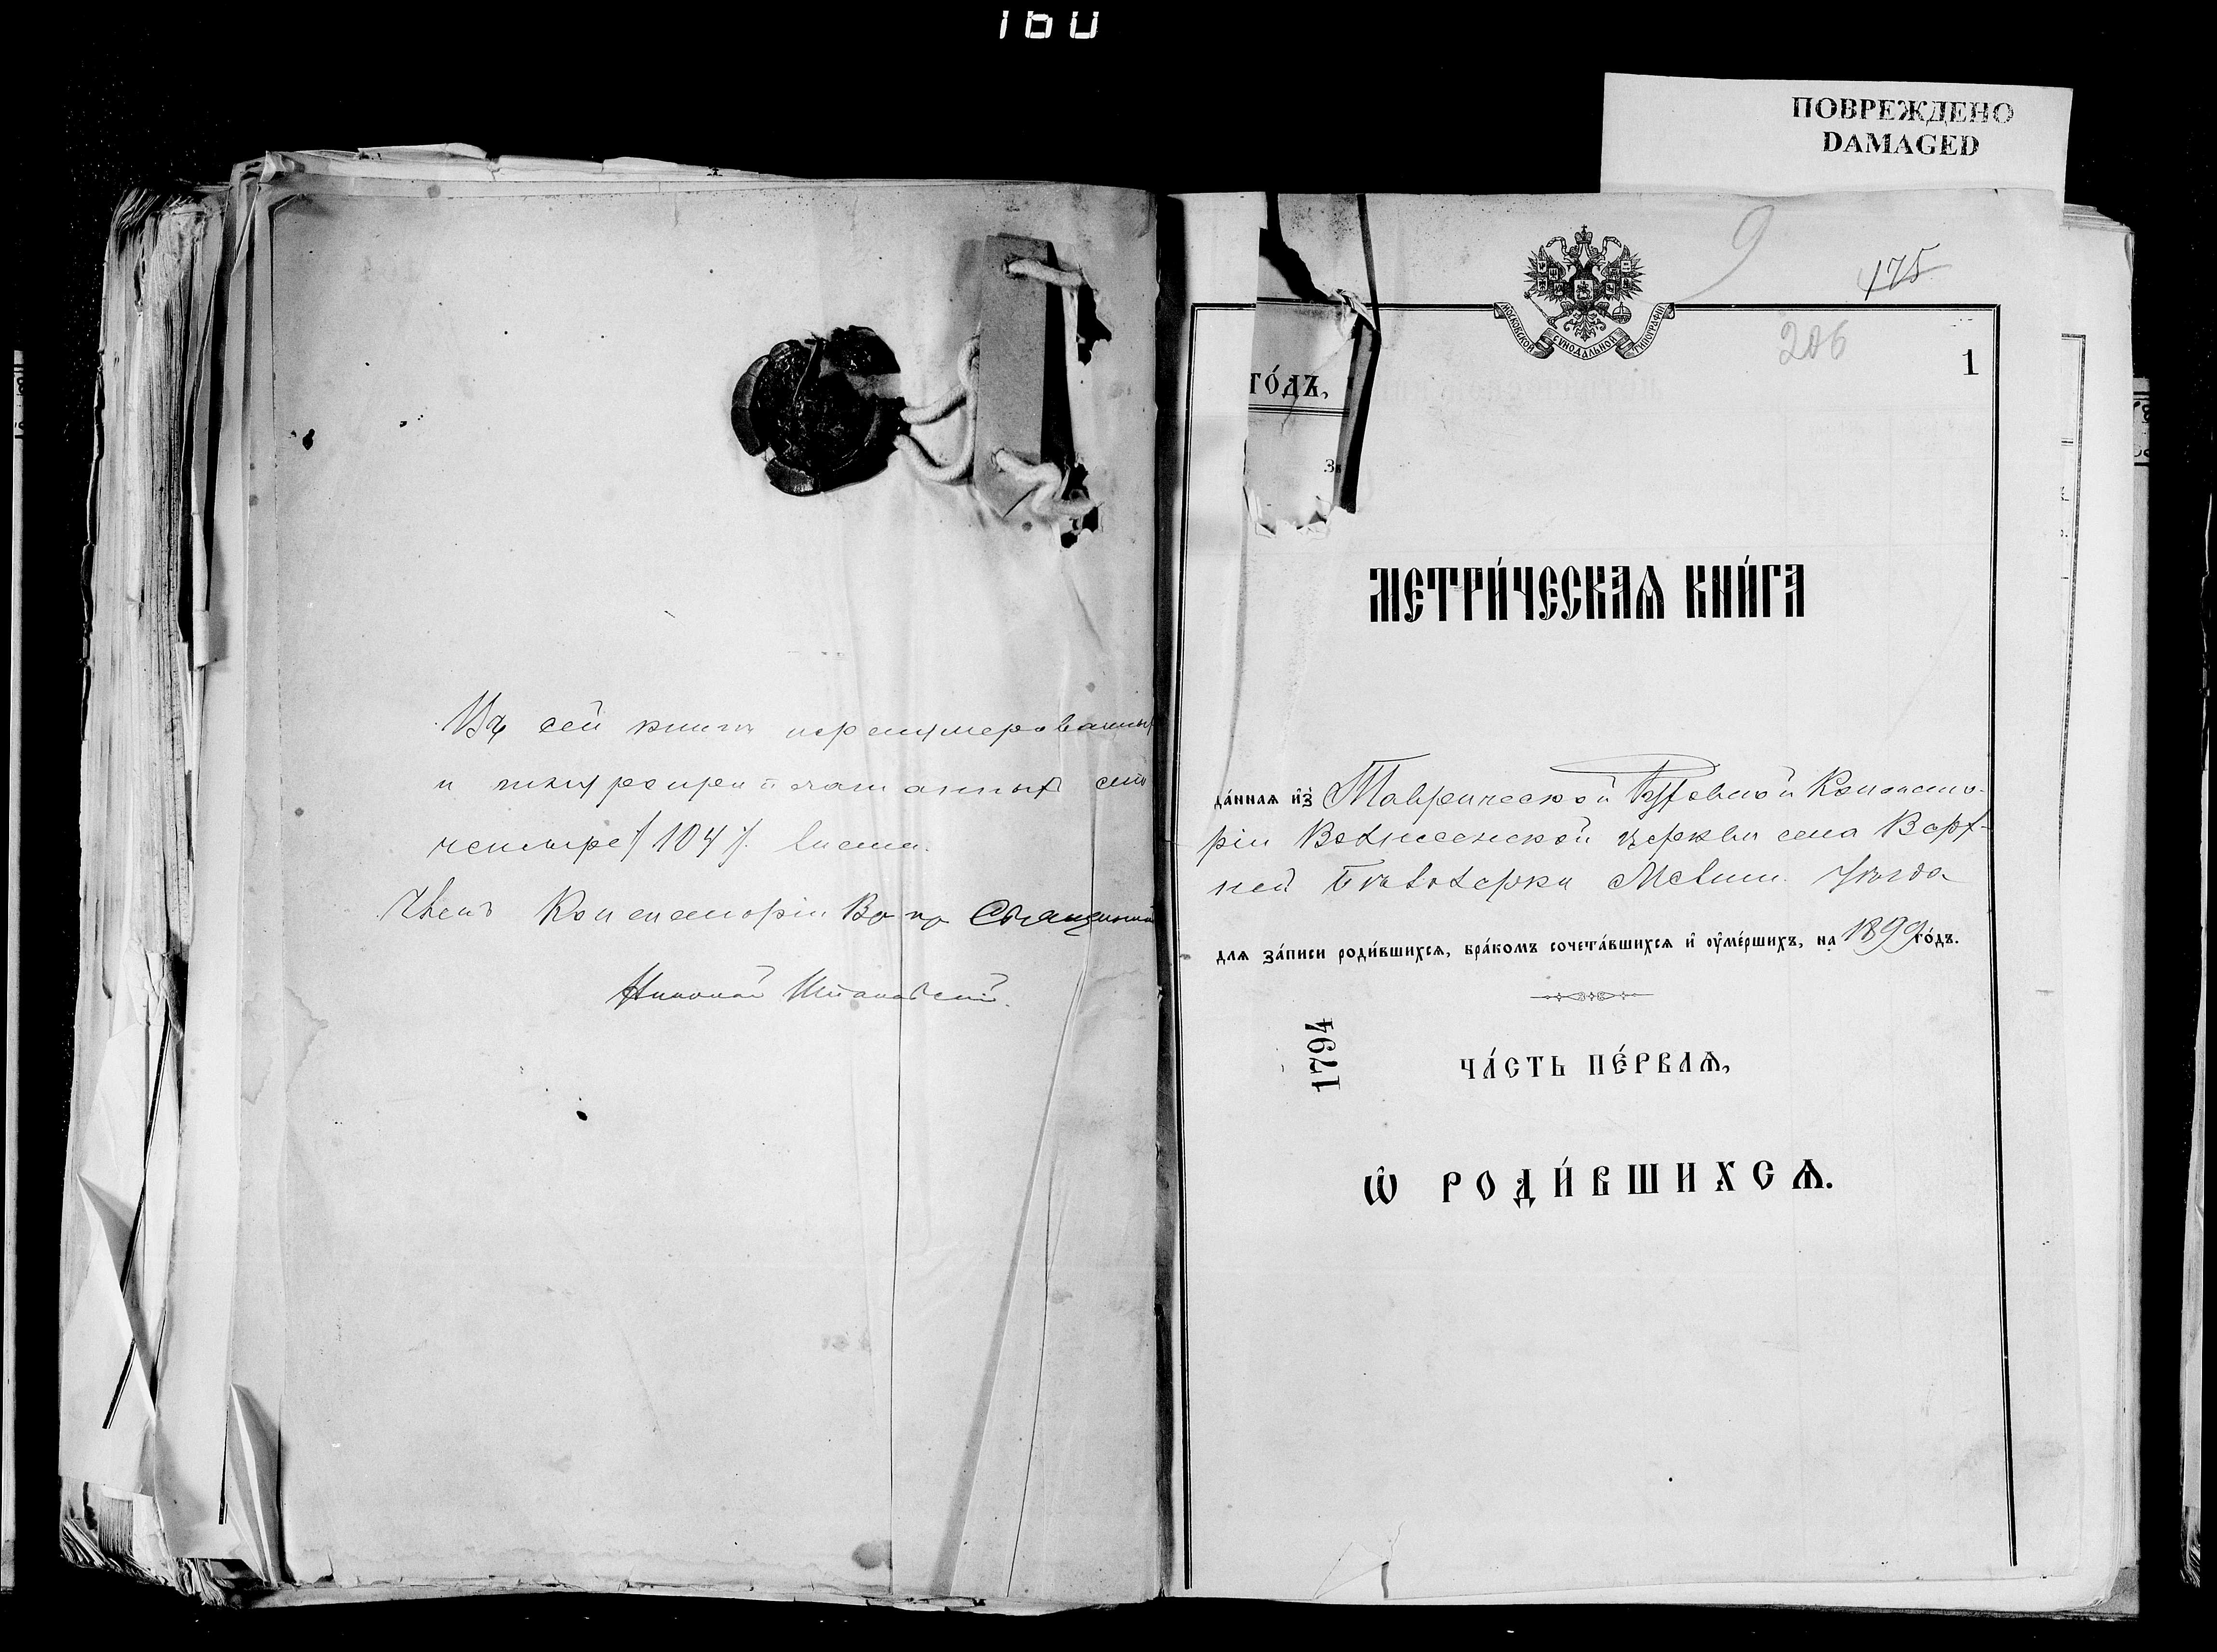 160
ПОВРЕЖДЕНО
DAMAGED
Въ сей книгѣ перенумерованныхъ
и шнуроприпечатанныхъ сто
четыре /104/. листа.
Членъ Консисторіи Священникъ
Николай
9
175
206
1
МОСКОВСКОЙ СѴНОДАЛЬНОЙ ТИПОГРАФІИ
ГО́ДЪ,
МЕТРИ́ЧЕСКАѦ КНИ́ГА
да́ннаѧ и҆зъ Таврической Духовной Консисто-
ріи Вознесенской церкви села Верх-
ней Бѣлозерки Мелит. Уѣзда
длѧ за́писи роди́вшихсѧ, бра́комъ сочета́вшихсѧ и҆ ᲂу҆ме́ршихъ, на 1899 го́дъ.
1794
ЧА́СТЬ ПЕ́РВАѦ,
Ѽ РОДИ́ВШИХСѦ.